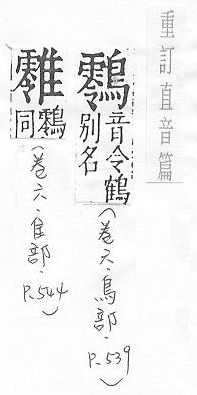 重訂直音篇
音令鶴
別名
(卷六.鳥部.
P.539)
同
(卷六.隹部.
P.544)